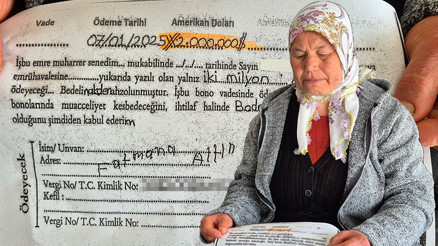 Vade Ödeme Tarihi Amerikan Doları
07/01/2025 X2.000.000$
İşbu emre muharrer senedim... mukabilinde .../.../.... tarihinde Sayın
emrühavalesine..........yukarıda yazılı olan yalnız iki milyon
ödeyeceği. Bedeli nakden ahzolunmuştur. İşbu bono vadesinde öd
bonolarında muacceliyet kesbedeceğini, ihtilaf halinde Bod
olduğunu şimdiden kabul ederim
İsim/ Unvan:
Adres: Fatmana Altın
Vergi No/ T.C. Kimlik No:
Kefil :
Vergi No/ T.C. Kimlik No:
Ödeyecek